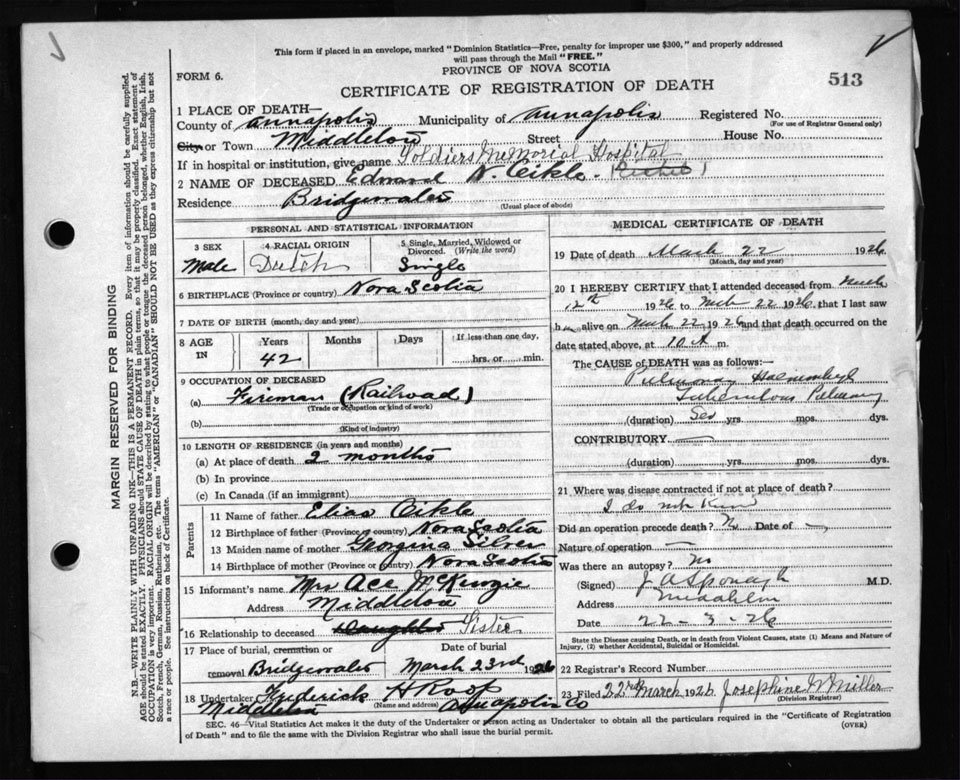 This form if placed in an envelope, marked "Dominion Statistics—Free, penalty for improper use $300," and properly addressed
will pass through the Mail "FREE."
PROVINCE OF NOVA SCOTIA
FORM 6.
513
CERTIFICATE OF REGISTRATION OF DEATH
1 PLACE OF DEATH—
County of Annapolis Municipality of Annapolis Registered No.
(For use of Registrar General only)
City or Town Middleton Street House No.
If in hospital or institution, give name Soldiers Memorial Hospital
2 NAME OF DECEASED Edward N. Oikle.
Residence Bridgewater
(Usual place of abode)
PERSONAL AND STATISTICAL INFORMATION
3 SEX
Male
4 RACIAL ORIGIN
Dutch
5 Single, Married, Widowed or
Divorced. (Write the word)
Single
6 BIRTHPLACE (Province or country) Nova Scotia
7 DATE OF BIRTH (month, day and year)
8 AGE
IN
Years Months Days If less than one day,
42 hrs. or min.
9 OCCUPATION OF DECEASED
(a) Fireman (Railroad)
(Trade or occupation or kind of work)
(b)
(Kind of industry)
10 LENGTH OF RESIDENCE (in years and months)
(a) At place of death 2 months
(b) In province
(c) In Canada (if an immigrant)
Parents
11 Name of father Elias Oikle
12 Birthplace of father (Province or country) Nova Scotia
13 Maiden name of mother Georgina Silver
14 Birthplace of mother (Province or country) Nova Scotia
15 Informant's name Mrs Ace McKenzie
Address Middleton
16 Relationship to deceased Daughter Sister
17 Place of burial, cremation or Date of burial
removal Bridgewater March 23rd 1926
18 Undertaker Frederick H Roop
(Name and address)
Middleton Annapolis Co
MEDICAL CERTIFICATE OF DEATH
19 Date of death March 22 1926
(Month, day and year)
20 I HEREBY CERTIFY that I attended deceased from March
12th 1926 to Mch 22 1926, that I last saw
him alive on Mch 22 1926 and that death occurred on
date stated above, at 10 A m.
The CAUSE OF DEATH was as follows:
Pulmonary Haemorrhage
Tuberculous Pulmonary
(duration) yrs. mos. dys.
CONTRIBUTORY
(duration) yrs. mos. dys.
21 Where was disease contracted if not at place of death?
I do not know
Did an operation precede death? No Date of
Nature of operation
Was there an autopsy? no
(Signed) J A Sponagle M.D.
Address Middleton
Date 22-3-26
State the Disease causing Death, or in death from Violent Causes, state (1) Means and Nature of
Injury, (2) whether Accidental, Suicidal or Homicidal.
22 Registrar's Record Number
23 Filed 22nd March 1926 Josephine W Miller
(Division Registrar)
SEC. 46—Vital Statistics Act makes it the duty of the Undertaker or person acting as Undertaker to obtain all the particulars required in the "Certificate of Registration
of Death" and to file the same with the Division Registrar who shall issue the burial permit.
(OVER)
MARGIN RESERVED FOR BINDING
N.B.—WRITE PLAINLY WITH UNFADING INK—THIS IS A PERMANENT RECORD. Every item of information should be carefully supplied.
AGE should be stated EXACTLY. PHYSICIANS should STATE CAUSE OF DEATH in plain terms, so that it may be properly classified. Exact statement of
OCCUPATION is very important. RACIAL ORIGIN will be described by stating to what people or tongue the deceased person belonged, whether English, Irish,
Scotch, French, German, Russian, Ruthenian, etc. The terms "AMERICAN" or "CANADIAN" SHOULD NOT BE USED as they express citizenship but not
a race or people. See instructions on back of Certificate.